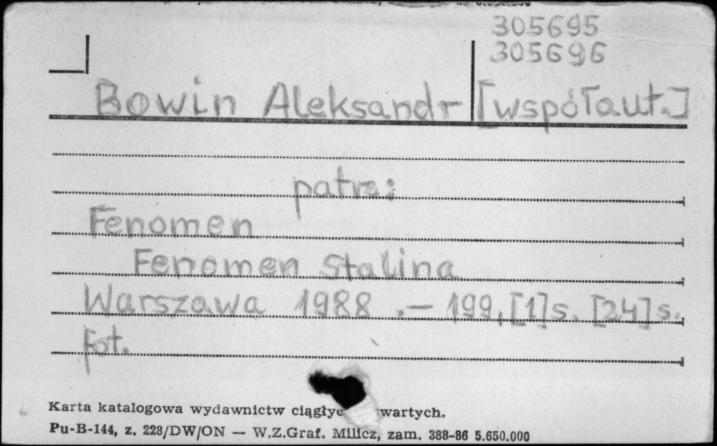 305695
305696
Bowin Aleksandr [współaut.]
patrz:
Fenomen
Fenomen Stalina
Warszawa 1988 .— 199,[1]s. [24]s.
fot.
Karta katalogowa wydawnictw ciągłyc wartych.
Pu-B-144, z. 228/DW/ON — W.Z.Graf. Milicz, zam. 388-86 5.650.000